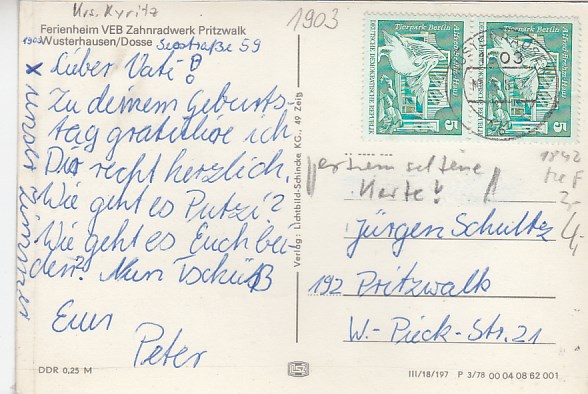 Krs. Kyritz
1903
Ferienheim VEB Zahnradwerk Pritzwalk
1903 Wusterhausen/Dosse Seestraße 59
Lieber Vati!
Zu deinem Geburts-
tag gratuliere ich
Dir recht herzlich.
Wie geht es Putzi?
Wie geht es Euch bei-
den? Nun Tschüß
Euer
Peter
x unser Zimmer
DDR 0,25 M
Verlag: Lichtbild-Schincke KG., 49 Zeitz
Tierpark Berlin
Alfred-Brehm-Haus
DEUTSCHE DEMOKRATISCHE REPUBLIK
5
Tierpark Berlin
Alfred-Brehm-Haus
DEUTSCHE DEMOKRATISCHE REPUBLIK
5
extrem seltene
Karte!
1842
Jürgen Schultz
192 Pritzwalk
W.-Pieck-Str. 21
III/18/197 P 3/78 00 04 08 62 001